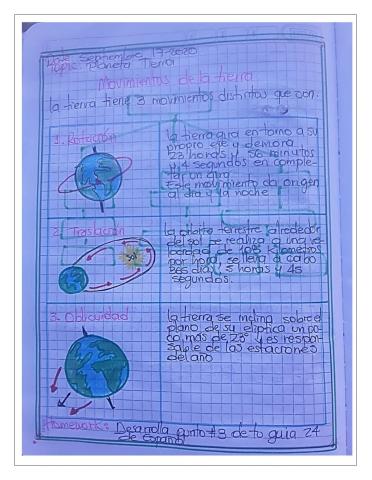 Date Septiembre 17-2020
Topic: planeta Tierra
Movimientos de la tierra
la tierra tiene 3 movimientos distintos que son:
1. Rotación
la tierra gira en torno a su
propio eje y demora
23 horas y 56 minutos
y 4 segundos en comple-
tar un giro
Este movimiento da origen
al dia y la noche
2. Traslación
la orbita terrestre alrededor
del sol se realiza a una ve-
locidad de kilometros
por hora, se lleva a cabo
365 dias, 5 horas y 45
segundos.
Sol
3. Oblicuidad
la tierra se inclina sobre el
plano de su eliptica un po-
co mas de 23° y es respon-
sable de las estaciones
del año
Homework: Desarrolla punto #3 de to guia 24
de Español